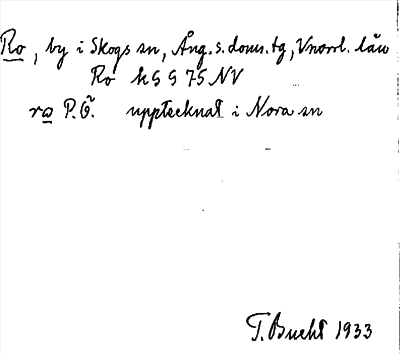 Ro, by i Skogs sn, Ång. s. doms. tg, Vnorrl. län
Ro kSG 75 NV
ro P.Ö. upptecknat i Nora sn
T. Bucht 1933